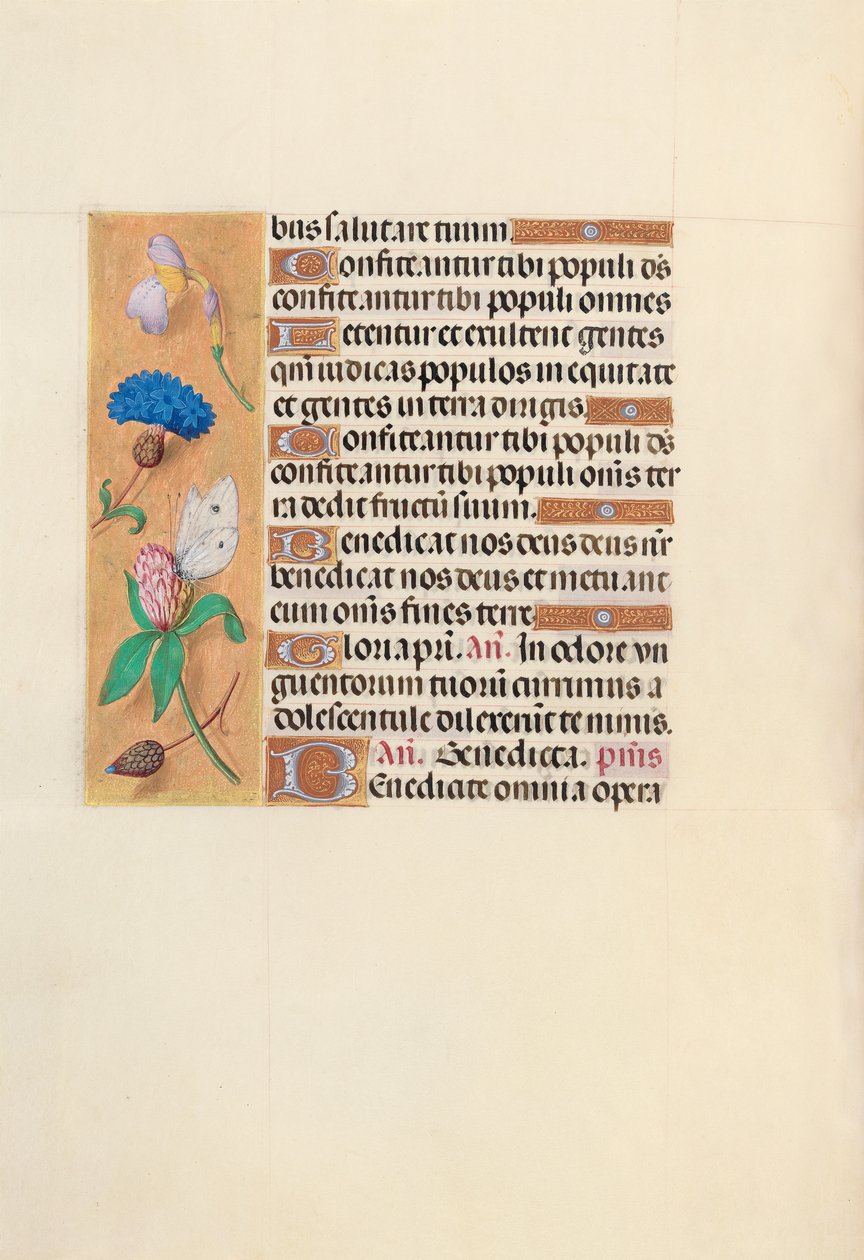 bus salutare tuum
Confiteantur tibi populi ds̄
confiteantur tibi populi omnes
Letentur et exultent gentes
qm̄ iudicas populos in equitate
et gentes in terra dirigis.
Confiteantur tibi populi ds̄
confiteantur tibi populi om̄s ter
ra dedit fructū suum.
Benedicat nos deus deus nr̄
benedicat nos deus et metuant
eum om̄s fines terre
Gloria pri̅. An̄. In odore vn
guentorum tuorū currimus a
dolescentule dilexerūt te nimis.
An̄. Benedicta. pm̄s
BEnedicite omnia opera